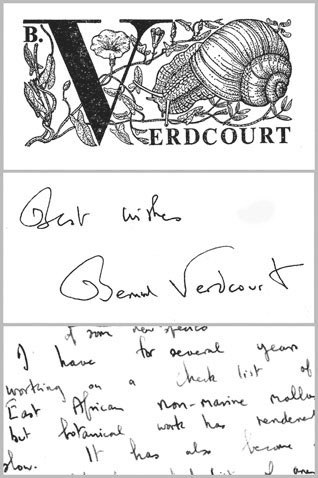 B. VERDCOURT
Best wishes
Bernard Verdcourt
of some new species
I have for several years
working on a check list of
East African non-marine mollu
but botanical work has rendered
slow. It has also become